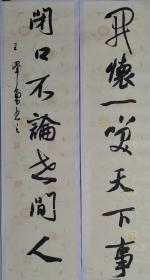 開懷一笑天下事
閉口不論世間人